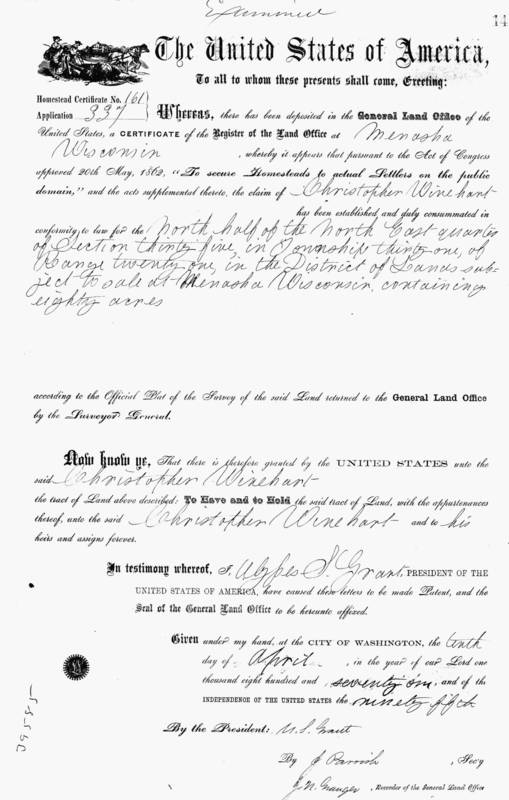 Examined
14
The United States of America,
To all to whom these presents shall come, Greeting:
Homestead Certificate No. 161
Application 337
Whereas, there has been deposited in the General Land Office of the
United States, a CERTIFICATE of the Register of the Land Office at Menasha
Wisconsin, whereby it appears that pursuant to the Act of Congress
approved 20th May, 1862, "To secure Homesteads to actual Settlers on the public
domain," and the acts supplemental thereto, the claim of Christopher Winehart
has been established, and duly consummated in
conformity to law for the North half of the North East quarter
of Section thirty five, in Township thirty one, of
Range twenty one, in the District of Lands sub-
ject to sale at Menasha Wisconsin, containing
eighty acres
according to the Official Plat of the Survey of the said Land returned to the General Land Office
by the Surveyor General.
Now know ye, That there is therefore granted by the UNITED STATES unto the
said Christopher Winehart
the tract of Land above described: To Have and to Hold the said tract of Land, with the appurtenances
thereof, unto the said Christopher Winehart and to his
heirs and assigns forever.
In testimony whereof, I, Ulysses S. Grant, PRESIDENT OF THE
UNITED STATES OF AMERICA, have caused these letters to be made Patent, and the
Seal of the General Land Office to be hereunto affixed.
Given under my hand, at the CITY OF WASHINGTON, the tenth
day of April, in the year of our Lord one
thousand eight hundred and seventy one, and of the
INDEPENDENCE OF THE UNITED STATES the ninety fifth
By the President: U.S. Grant
By J Parrish, Secy
J.N. Granger, Recorder of the General Land Office